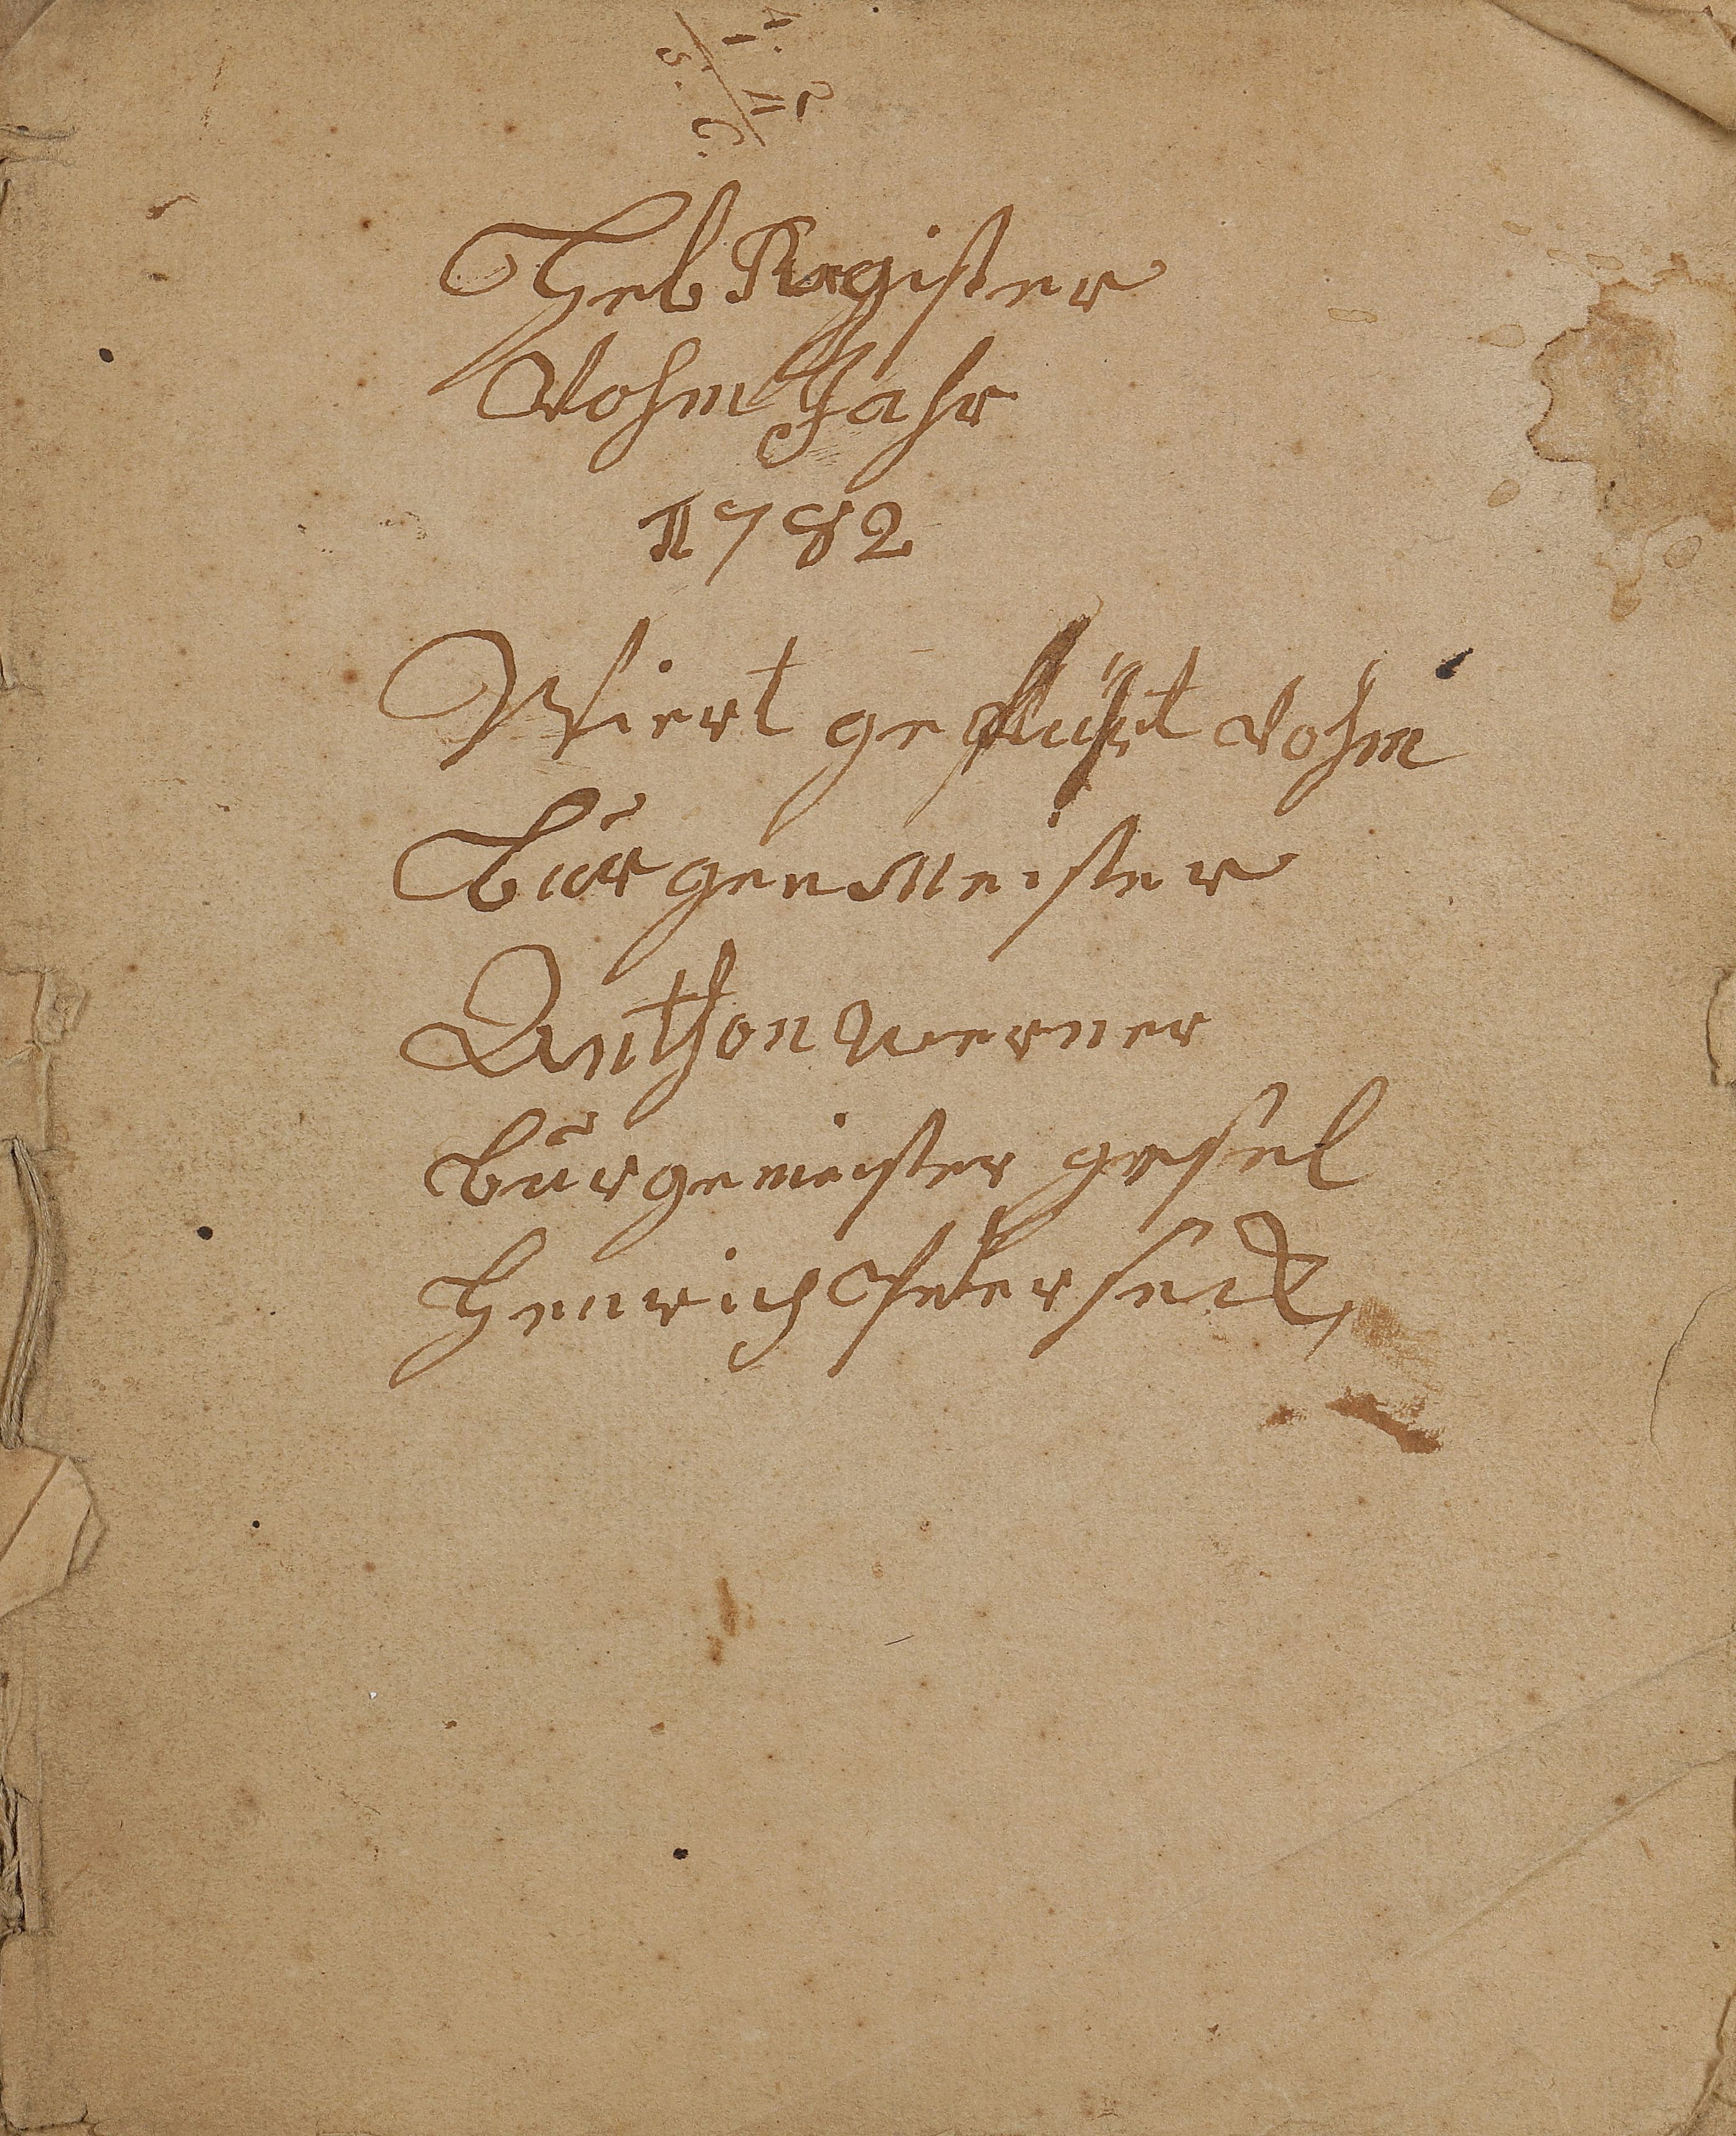 Heb Register
Vohm Jahr
1782
Wiert geführt Vohm
Bürger Meister
Anthon Werner
bürgemeister gesel
Henrich Peter